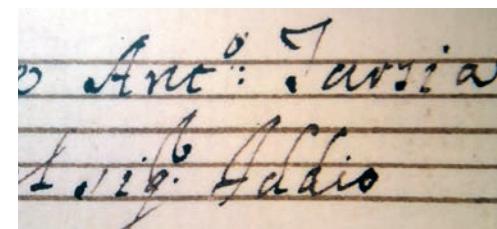 o Antº: Tarsia
Sigr. Addio